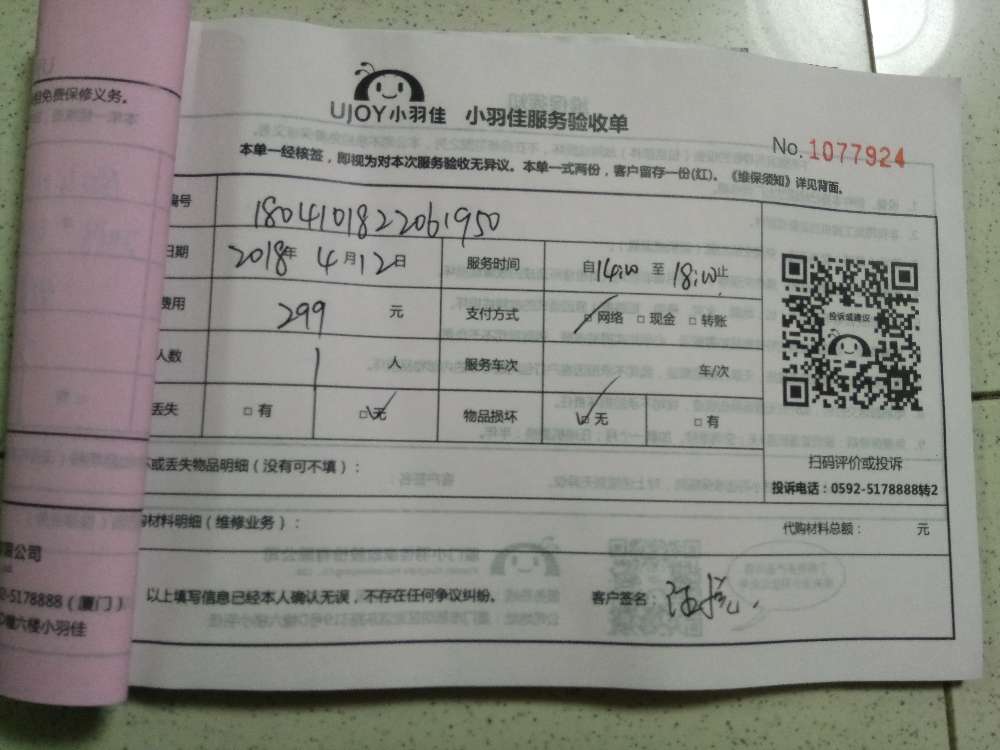 担免费保修义务。
UJOY小羽佳 小羽佳服务验收单
No. 1077924
本单一经核签，即视为对本次服务验收无异议。本单一式两份，客户留存一份(红)。《维保须知》详见背面。
编号 1804101822061950
日期 2018年 4月12日 服务时间 自14:00 至 18:00止
费用 299 元 支付方式 □网络 □现金 □转账
投诉或建议
人数 1 人 服务车次 / 车/次
丢失 □有 □无 物品损坏 □无 □有
扫码评价或投诉
投诉电话：0592-5178888转2
坏或丢失物品明细（没有可不填）：
购材料明细（维修业务）： 代购材料总额： 元
限公司
2-5178888（厦门）
D幢六楼小羽佳
以上填写信息已经本人确认无误，不存在任何争议纠纷。 客户签名